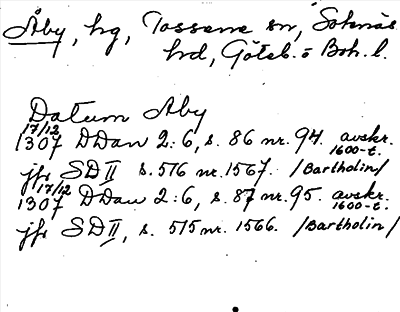 Åby, hg, Tossene sn, Sotenäs
hrd, Göteb. o Boh. l.
Datum Aby
17/12
1307 DDan 2:6, s. 86 nr. 94. avskr.
1600-t.
jfr SD II s. 516 nr. 1567. /Bartholin/
17/12
1307 DDan 2:6, s. 87 nr. 95. avskr.
1600-t.
jfr SD II, s. 515 nr. 1566. /Bartholin/